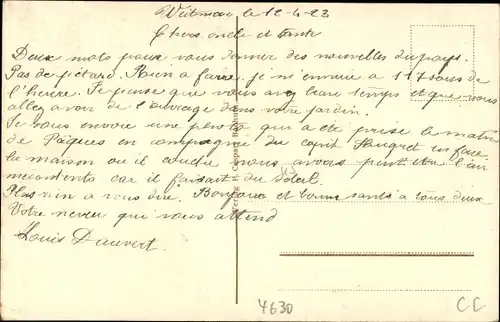 le 12-4-23
Chers oncle et tante
Deux mots pour vous donner des nouvelles du pays.
Pas de pétard. Rien a faire. je m'ennuie a 117 sous de
l'heure. Je pense que vous avez beau temps et que vous
allez avoir de l'ouvrage dans votre jardin.
Je vous envoie une photo qui a été prise le matin
de Pâques en compagnie du en face
la maison ou il couche nous avons
mécontents car il faisait du soleil.
Plus rien a vous dire. Bonjour et bonne santé a tous deux
Votre neveu qui vous attend
Louis Dauvert.
4630
CC